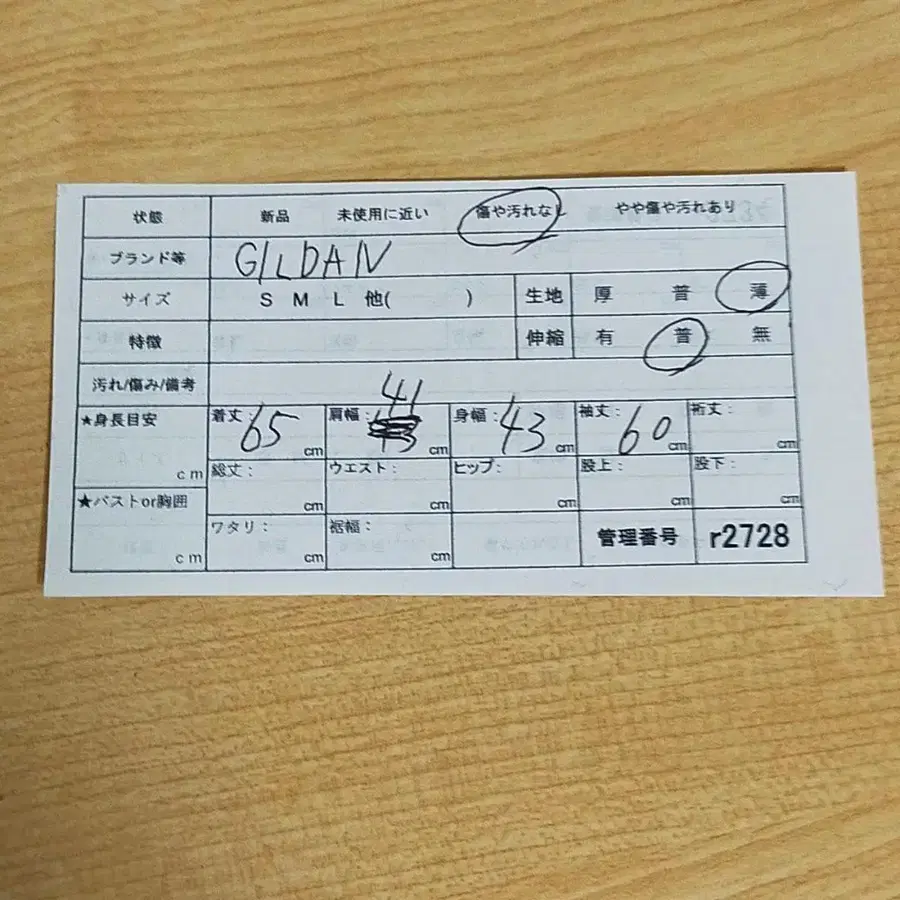 状態 新品 未使用に近い 傷や汚れなし やや傷や汚れあり
ブランド等 GILDAN
サイズ S M L 他( ) 生地 厚 普 薄
特徴 伸縮 有 普 無
汚れ/傷み/備考
★身長目安 cm 着丈: 65 cm 肩幅: 41 cm 身幅: 43 cm 袖丈: 60 cm 裄丈: cm
総丈: cm ウエスト: cm ヒップ: cm 股上: cm 股下: cm
★バストor胸囲 cm ワタリ: cm 裾幅: cm 管理番号 r2728